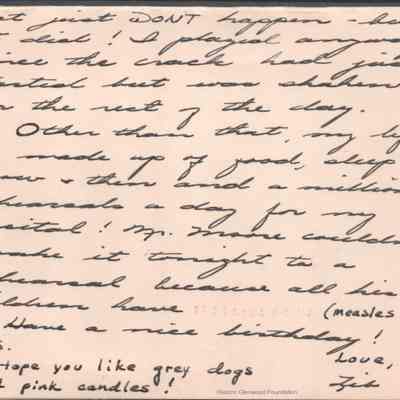 at just DON'T happen - bu
t did! I played anyway
since the crack had ju
started but was shaken
or the rest of the day.
Other than that, my li
made up of food, sleep
now & then and a million
rehearsals a day for my
recital! Mr. Moore couldn
make it tonight to a
rehearsal because all his
children have (measles
Have a nice birthday!
S. Love,
Hope you like grey dogs
d pink candles! Lib
Historic Glenwood Foundation